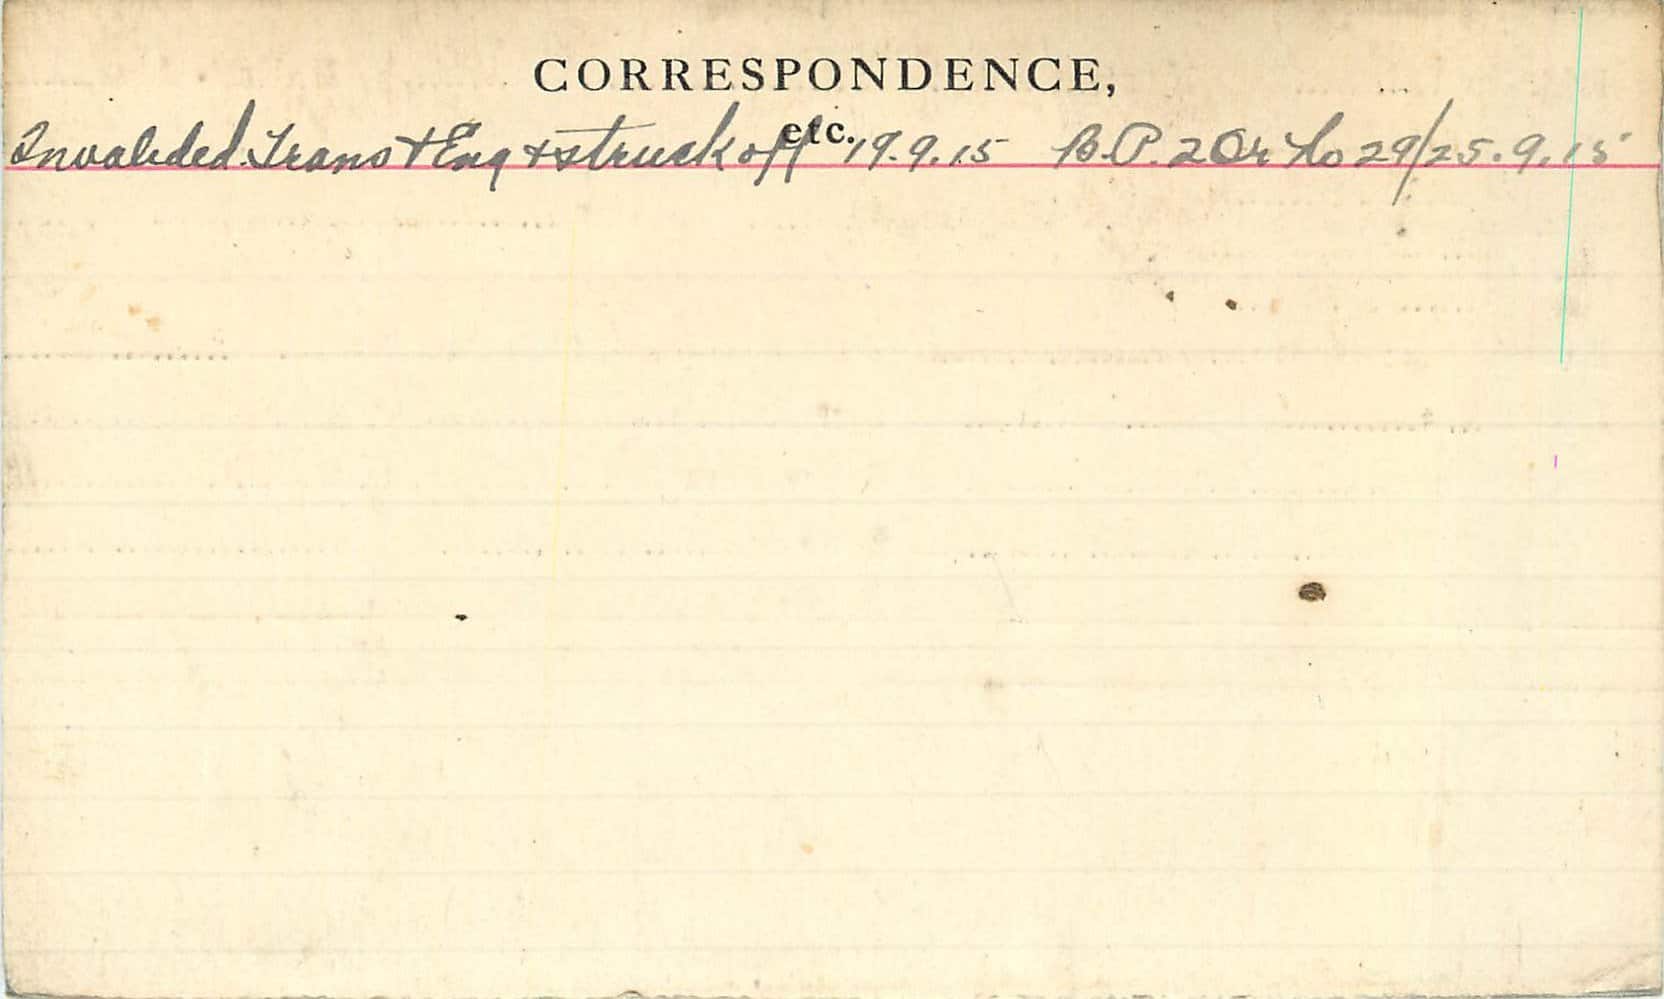 CORRESPONDENCE,
etc.
Invalided. Trans t Eng & struck off 19.9.15 B.P. 2 Or No 29/25.9.15